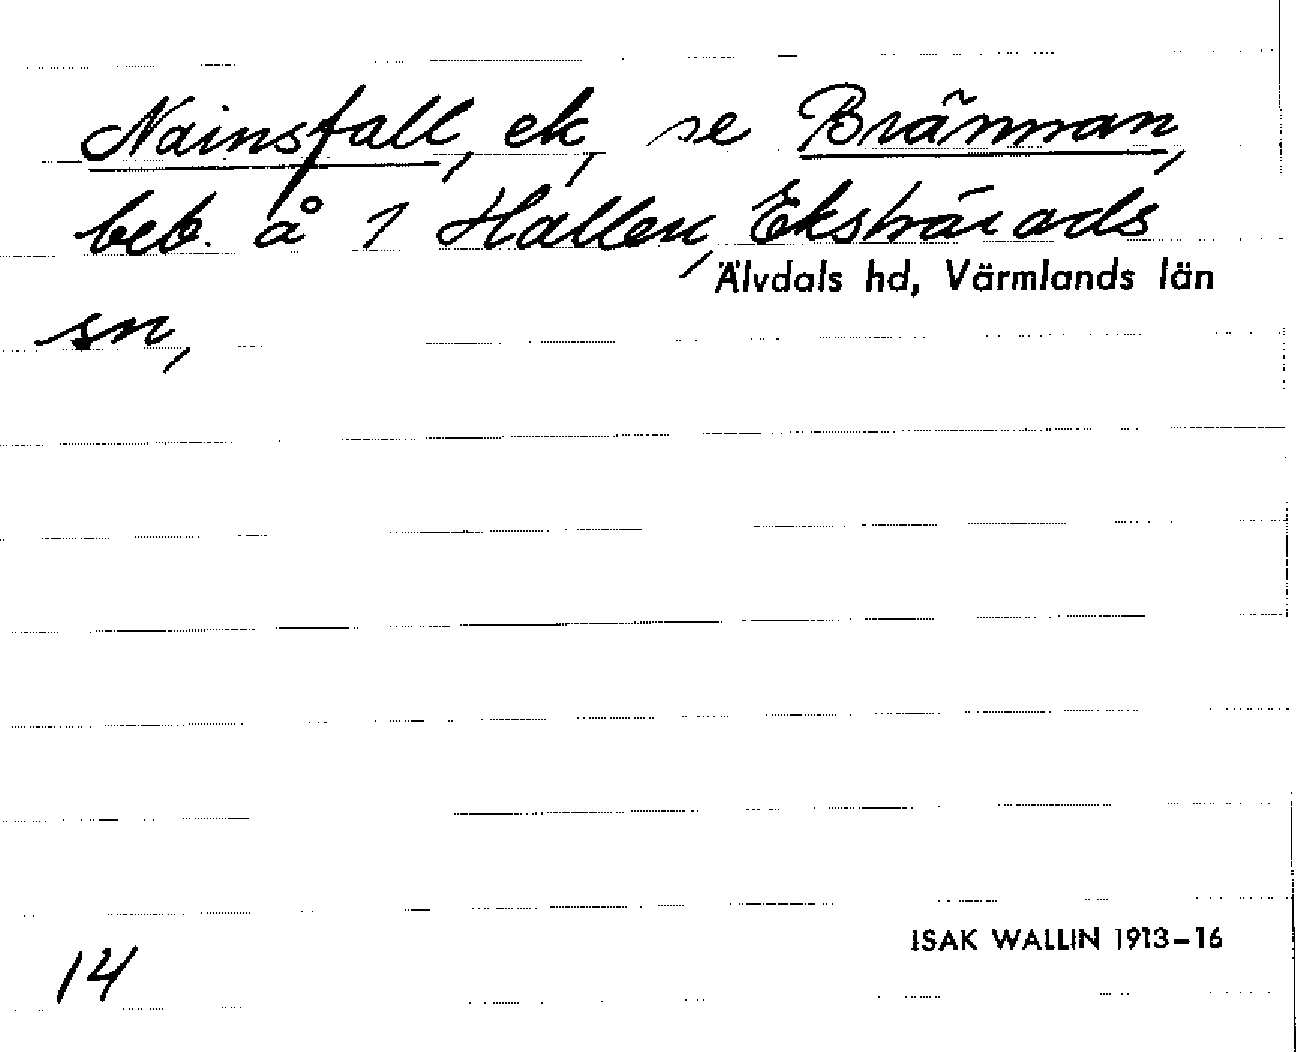 Nainsfall, ek, se Brännan,
beb. å 1 Hallen, Ekshärads
Älvdals hd, Värmlands län
sn,
14
ISAK WALLIN 1913-16